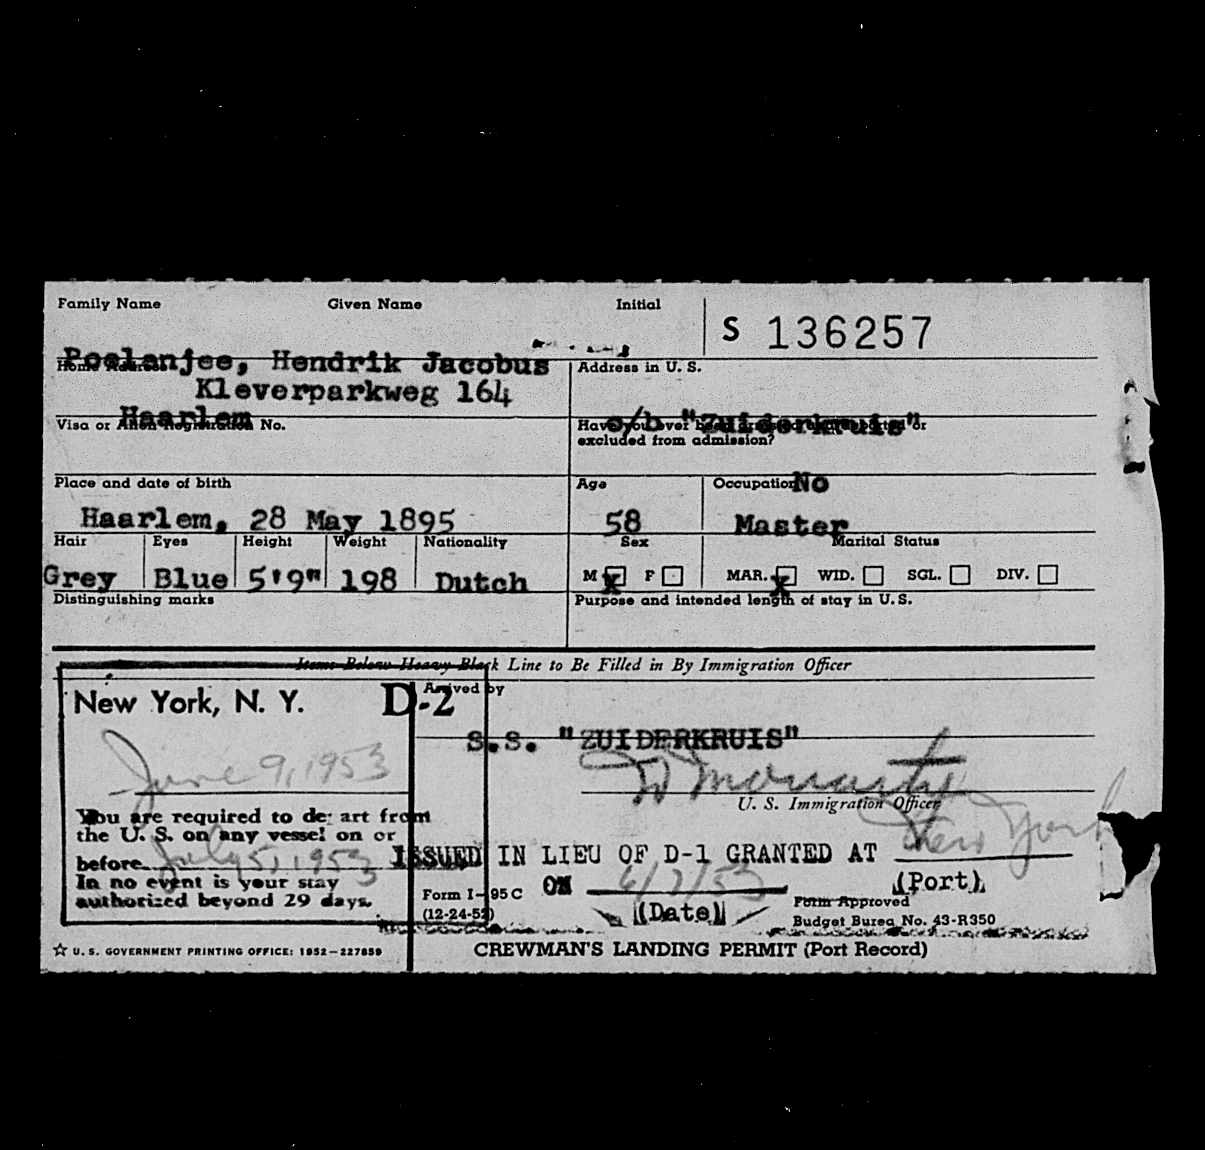 Family Name Given Name Initial
S 136257
Poelanjee, Hendrik Jacobus
Home Address
Kleverparkweg 164
Haarlem
Address in U. S.
o/b "Zuiderkruis"
Visa or Alien Registration No.
Have you ever been or
excluded from admission?
No
Place and date of birth
Haarlem, 28 May 1895
Age
58
Occupation
Master
Hair Eyes Height Weight Nationality
Grey Blue 5'9" 198 Dutch
Sex
M x F
Marital Status
MAR. x WID. SGL. DIV.
Distinguishing marks
Purpose and intended length of stay in U. S.
Items Below Heavy Black Line to Be Filled in By Immigration Officer
New York, N. Y. D-2
June 9, 1953
You are required to depart from
the U. S. on any vessel on or
before July 5, 1953
In no event is your stay
authorized beyond 29 days.
Arrived by
S.S. "ZUIDERKRUIS"
U. S. Immigration Officer
New York
ISSUED IN LIEU OF D-1 GRANTED AT
(Port)
ON
(Date)
Form I-95 C
(12-24-52)
Form Approved
Budget Bureau No. 43-R350
☆ U. S. GOVERNMENT PRINTING OFFICE: 1952—227859
CREWMAN'S LANDING PERMIT (Port Record)